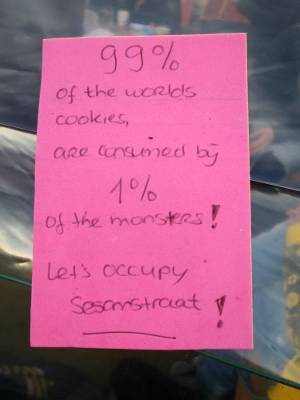 99%
of the worlds
cookies,
are consumed by
1%
of the monsters!
Let's occupy
Sesamstraat!